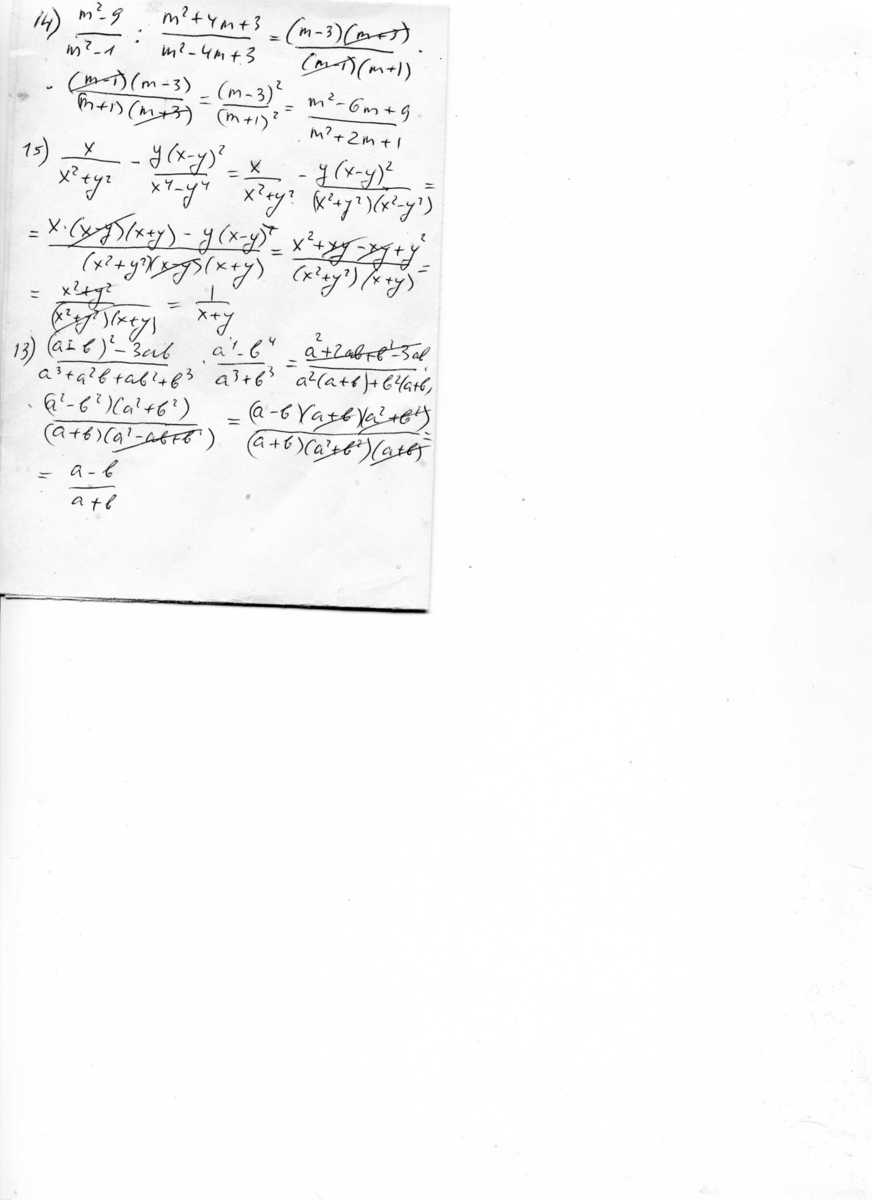 14) (m²-9)/(m²-1) : (m²+4m+3)/(m²-4m+3) = (m-3)(m+3)/(m-1)(m+1) ·
· (m-1)(m-3)/(m+1)(m+3) = (m-3)²/(m+1)² = (m²-6m+9)/(m²+2m+1)
15) x/(x²+y²) - y(x-y)²/(x⁴-y⁴) = x/(x²+y²) - y(x-y)²/(x²+y²)(x²-y²) =
= (x·(x-y)(x+y) - y(x-y)²)/(x²+y²)(x-y)(x+y) = (x²+xy-xy+y²)/(x²+y²)(x+y) =
= (x²+y²)/(x²+y²)(x+y) = 1/(x+y)
13) ((a+b)²-3ab)/(a³+a²b+ab²+b³) · (a⁴-b⁴)/(a³+b³) = (a²+2ab+b²-3ab)/(a²(a+b)+b²(a+b)) ·
· (a²-b²)(a²+b²)/(a+b)(a²-ab+b²) = (a-b)(a+b)(a²+b²)/(a+b)(a²+b²)(a+b) =
= (a-b)/(a+b)